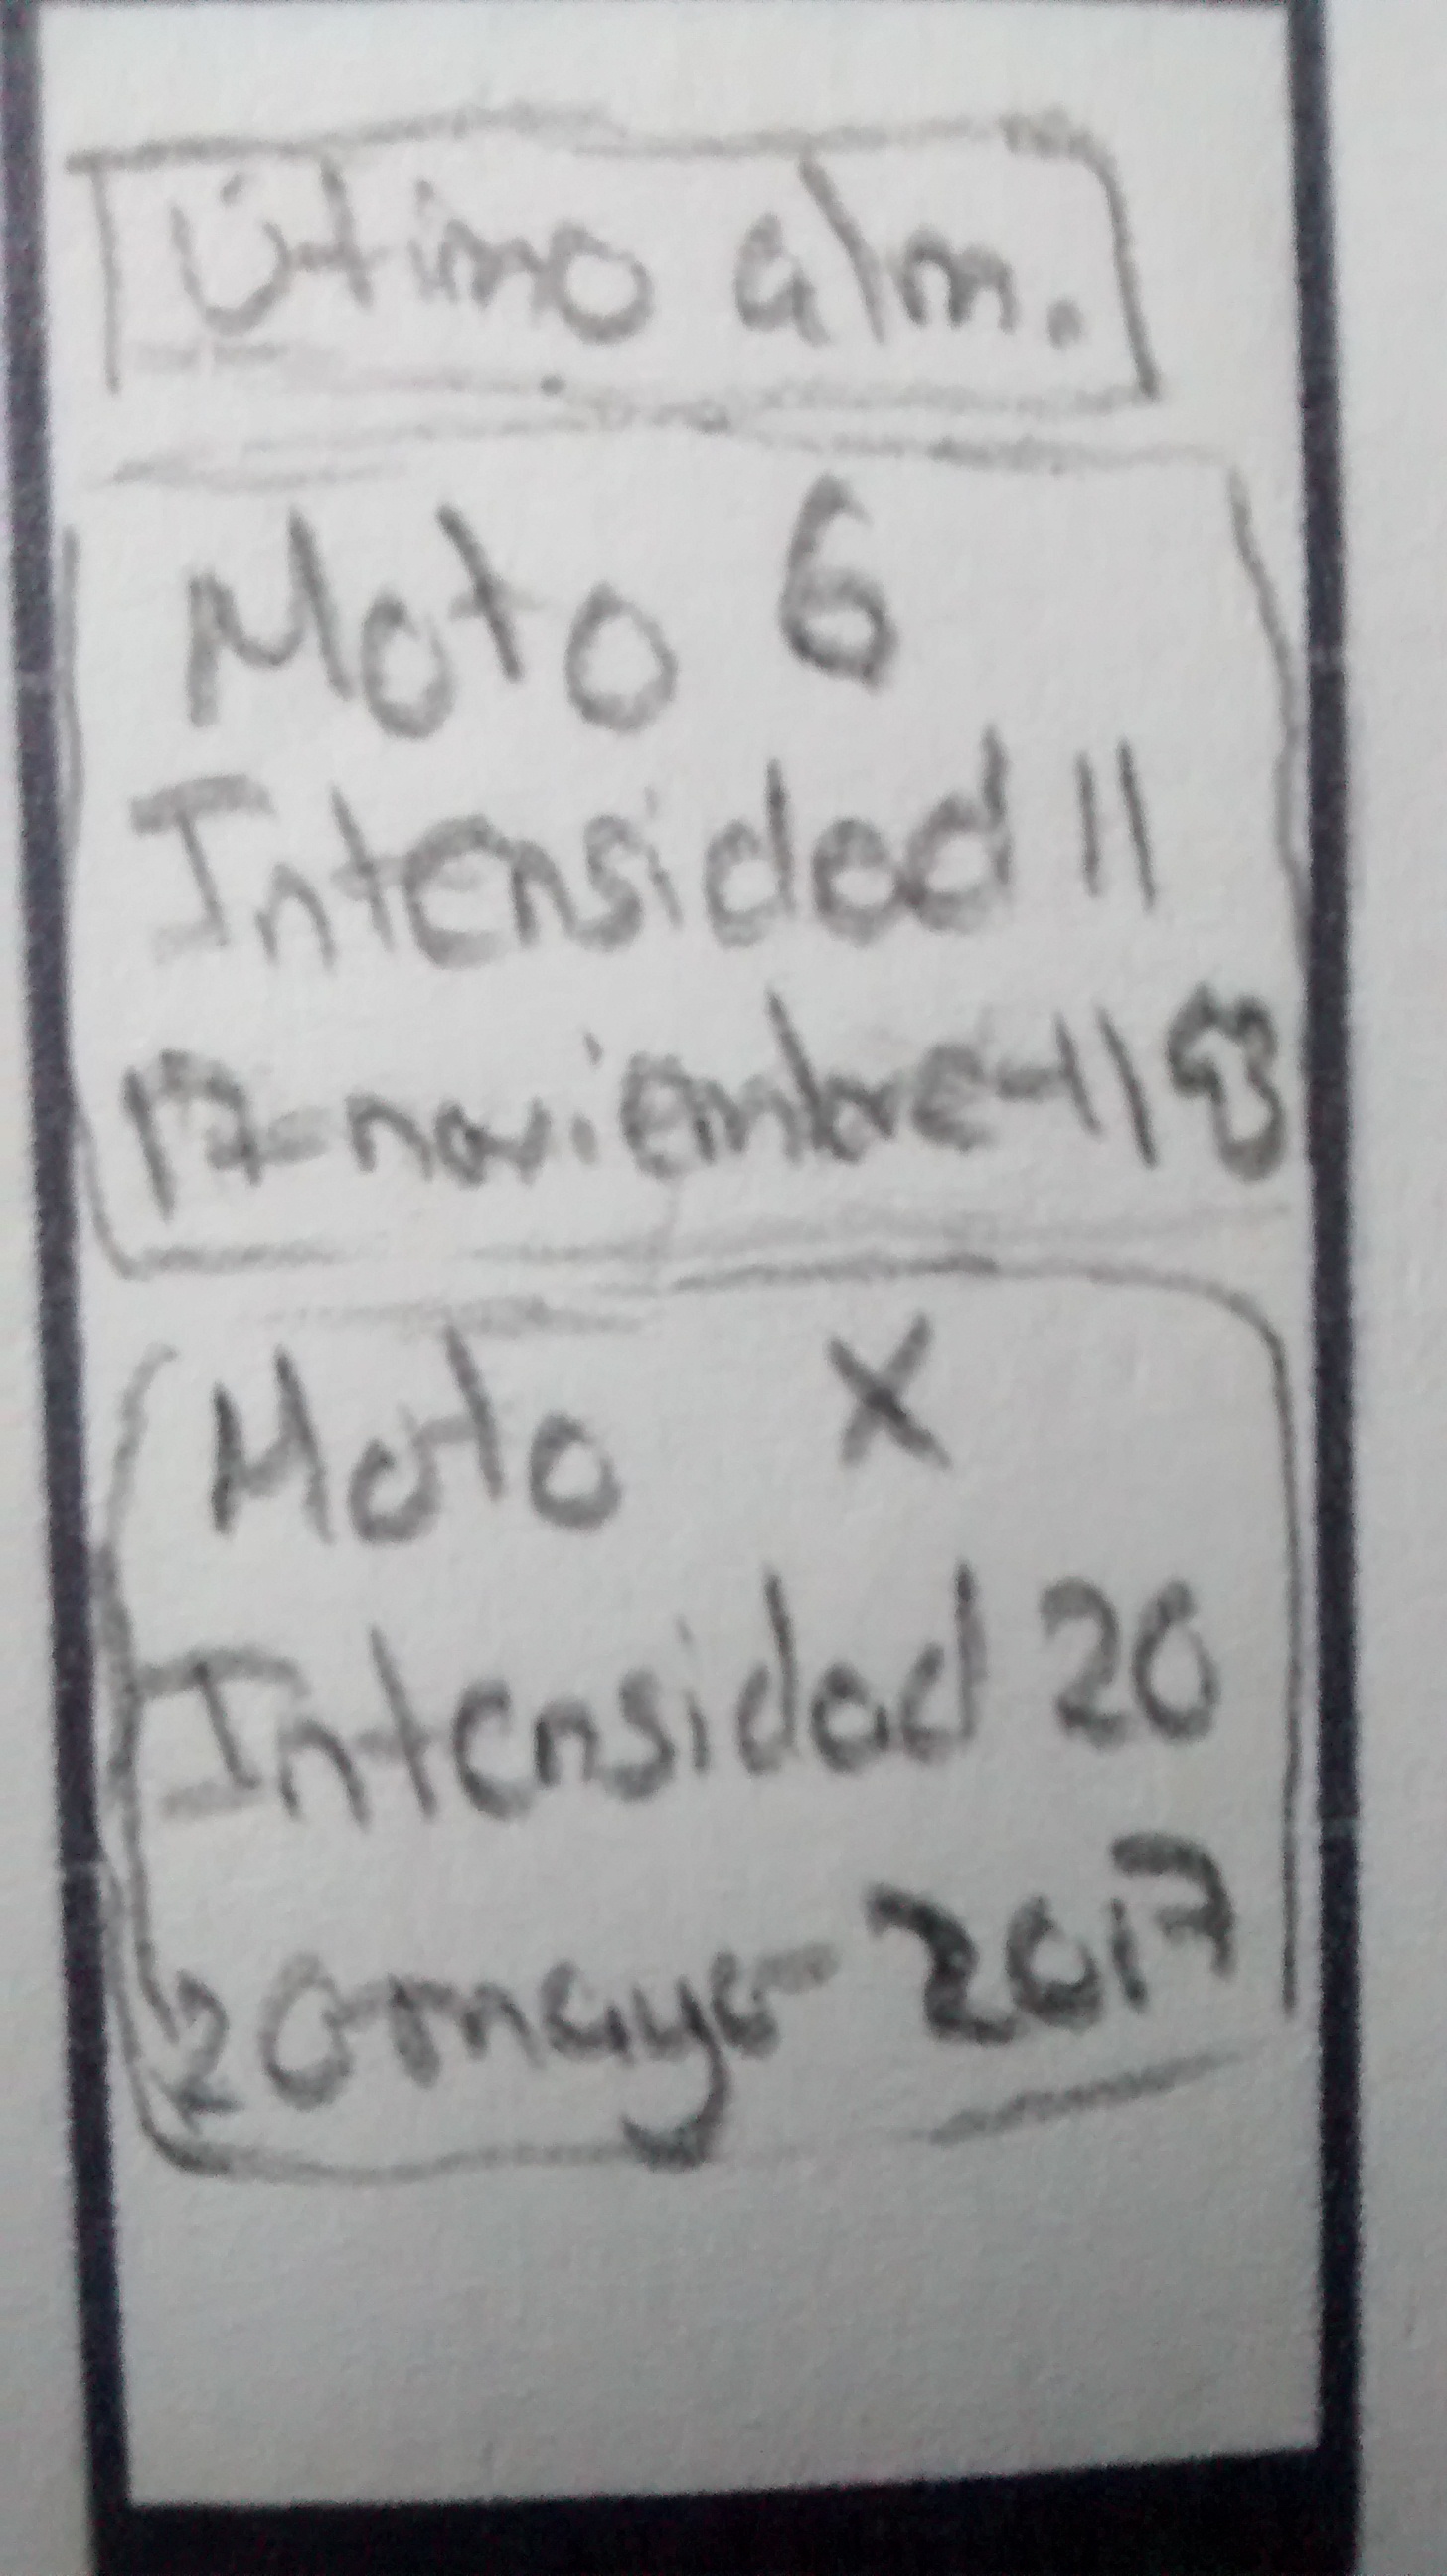 Útimo alm.
Moto 6
Intensidad 11
17-noviembre-11
Moto X
Intensidad 20
20-mayo-2017